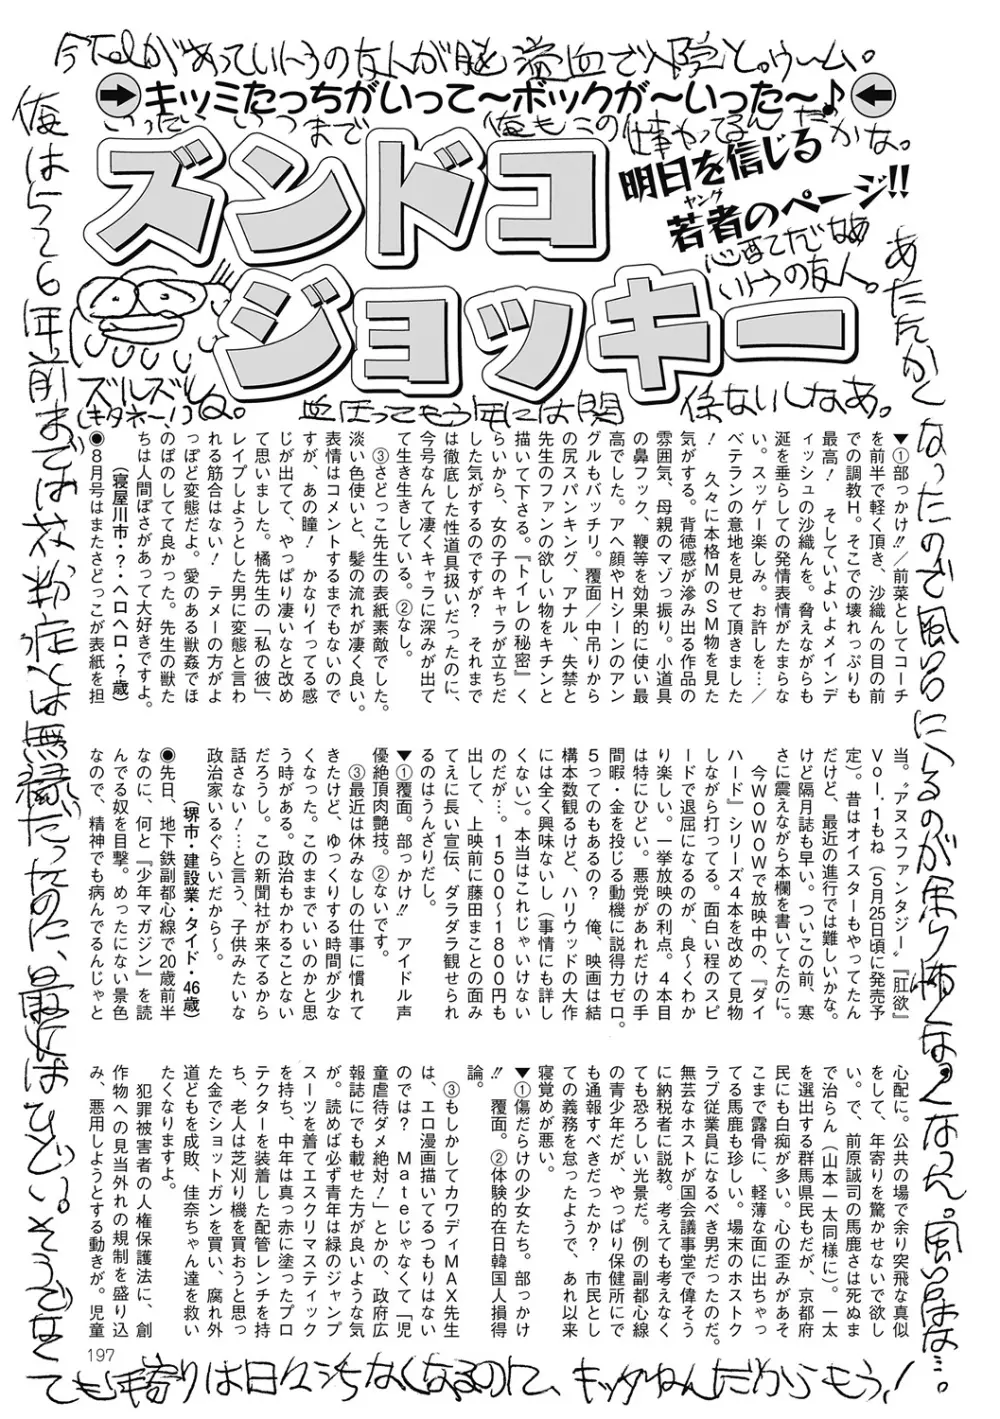 今Telがあっていとうの友人が脳溢血で入院と。ウーム。
キッミたっちがいって〜ボックが〜いった〜♪
いったいいつまで俺もこの仕事やってるんだかな。
ズンドコ
ジョッキー
明日を信じる
若者のページ!!
ヤング
心配てだなあ
いとうの友人。
ズルズル
(キタネー!)
血圧ってもう年には関係ないしなあ。
あたたかくなったので風呂に入るのが
▼①部っかけ!!／前菜としてコーチ
を前半で軽く頂き、沙織んの目の前
での調教Ｈ。そこでの壊れっぷりも
最高！　そしていよいよメインデ
ィッシュの沙織んを。脅えながらも
涎を垂らしての発情表情がたまらな
い。スッゲー楽しみ。お許しを…／
ベテランの意地を見せて頂きました
！　久々に本格ＭのＳＭ物を見た
気がする。背徳感が滲み出る作品の
雰囲気、母親のマゾっ振り。小道具
の鼻フック、鞭等を効果的に使い最
高でした。アヘ顔やＨシーンのアン
グルもバッチリ。覆面／中吊りから
の尻スパンキング、アナル、失禁と
先生のファンの欲しい物をキチンと
描いて下さる。『トイレの秘密』く
らいから、女の子のキャラが立ちだ
した気がするのですが？　それまで
は徹底した性道具扱いだったのに、
今号なんて凄くキャラに深みが出て
て生き生きしている。②なし。
　③さどっこ先生の表紙素敵でした。
淡い色使いと、髪の流れが凄く良い。
表情はコメントするまでもないので
すが、あの瞳！　かなりイってる感
じが出てて、やっぱり凄いなと改め
て思いました。橘先生の「私の彼」、
レイプしようとした男に変態と言わ
れる筋合はない！　テメーの方がよ
っぽど変態だよ。愛のある獣姦でほ
のぼのしてて良かった。先生の獣た
ちは人間ぽさがあって大好きですよ。
（寝屋川市・？・ヘロヘロ・？歳）
◉８月号はまたさどっこが表紙を担
当。〝アヌスファンタジー〟『肛欲』
Vol.1もね（５月25日頃に発売予
定）。昔はオイスターもやってたん
だけど、最近の進行では難しいかな。
けど隔月誌も早い。ついこの前、寒
さに震えながら本欄を書いてたのに。
　今ＷＯＷＯＷで放映中の、『ダイ
ハード』シリーズ４本を改めて見物
しながら打ってる。面白い程のスピ
ードで退屈になるのが、良〜くわか
り楽しい。一挙放映の利点。４本目
は特にひどい。悪党があれだけの手
間暇・金を投じる動機に説得力ゼロ。
５ってのもあるの？　俺、映画は結
構本数観るけど、ハリウッドの大作
には全く興味ないし（事情にも詳し
くない）。本当はこれじゃいけない
のだが…。１５００〜１８００円も
出して、上映前に藤田まことの面み
てえに長い宣伝、ダラダラ観せられ
るのはうんざりだし。
▼①覆面。部っかけ!!　アイドル声
優絶頂肉艶技。②ないです。
　③最近は休みなしの仕事に慣れて
きたけど、ゆっくりする時間が少な
くなった。このままでいいのかと思
う時がある。政治もかわることない
だろうし。この新聞社が来てるから
話さない！…と言う、子供みたいな
政治家いるぐらいだから〜。
（堺市・建設業・タイド・46歳）
◉先日、地下鉄副都心線で20歳前半
なのに、何と『少年マガジン』を読
んでる奴を目撃。めったにない景色
なので、精神でも病んでるんじゃと
心配に。公共の場で余り突飛な真似
をして、年寄りを驚かせないで欲し
い。で、前原誠司の馬鹿さは死ぬま
で治らん（山本一太同様に）。一太
を選出する群馬県民もだが、京都府
民にも白痴が多い。心の歪みがあそ
こまで露骨に、軽薄な面に出ちゃっ
てる馬鹿も珍しい。場末のホストク
ラブ従業員になるべき男だったのだ。
無芸なホストが国会議事堂で偉そう
に納税者に説教。考えても考えなく
ても恐ろしい光景だ。例の副都心線
の青少年だが、やっぱり保健所にで
も通報すべきだったか？　市民とし
ての義務を怠ったようで、あれ以来
寝覚めが悪い。
▼①傷だらけの少女たち。部っかけ
!!　覆面。②体験的在日韓国人損得
論。
　③もしかしてカワディＭＡＸ先生
は、エロ漫画描いてるつもりはない
のでは？　Ｍａｔｅじゃなくて「児
童虐待ダメ絶対！」とかの、政府広
報誌にでも載せた方が良いような気
が。読めば必ず青年は緑のジャンプ
スーツを着てエスクリマスティック
を持ち、中年は真っ赤に塗ったプロ
テクターを装着した配管レンチを持
ち、老人は芝刈り機を買おうと思っ
た金でショットガンを買い、腐れ外
道どもを成敗、佳奈ちゃん達を救い
たくなりますよ。
　犯罪被害者の人権保護法に、創
作物への見当外れの規制を盛り込
み、悪用しようとする動きが。児童
俺は526年前までは花粉症とは無縁だったのに、最近はひどい。そうでなく
ても年寄りは日々うちなくなるのに、キッツイねんだからもう！
197